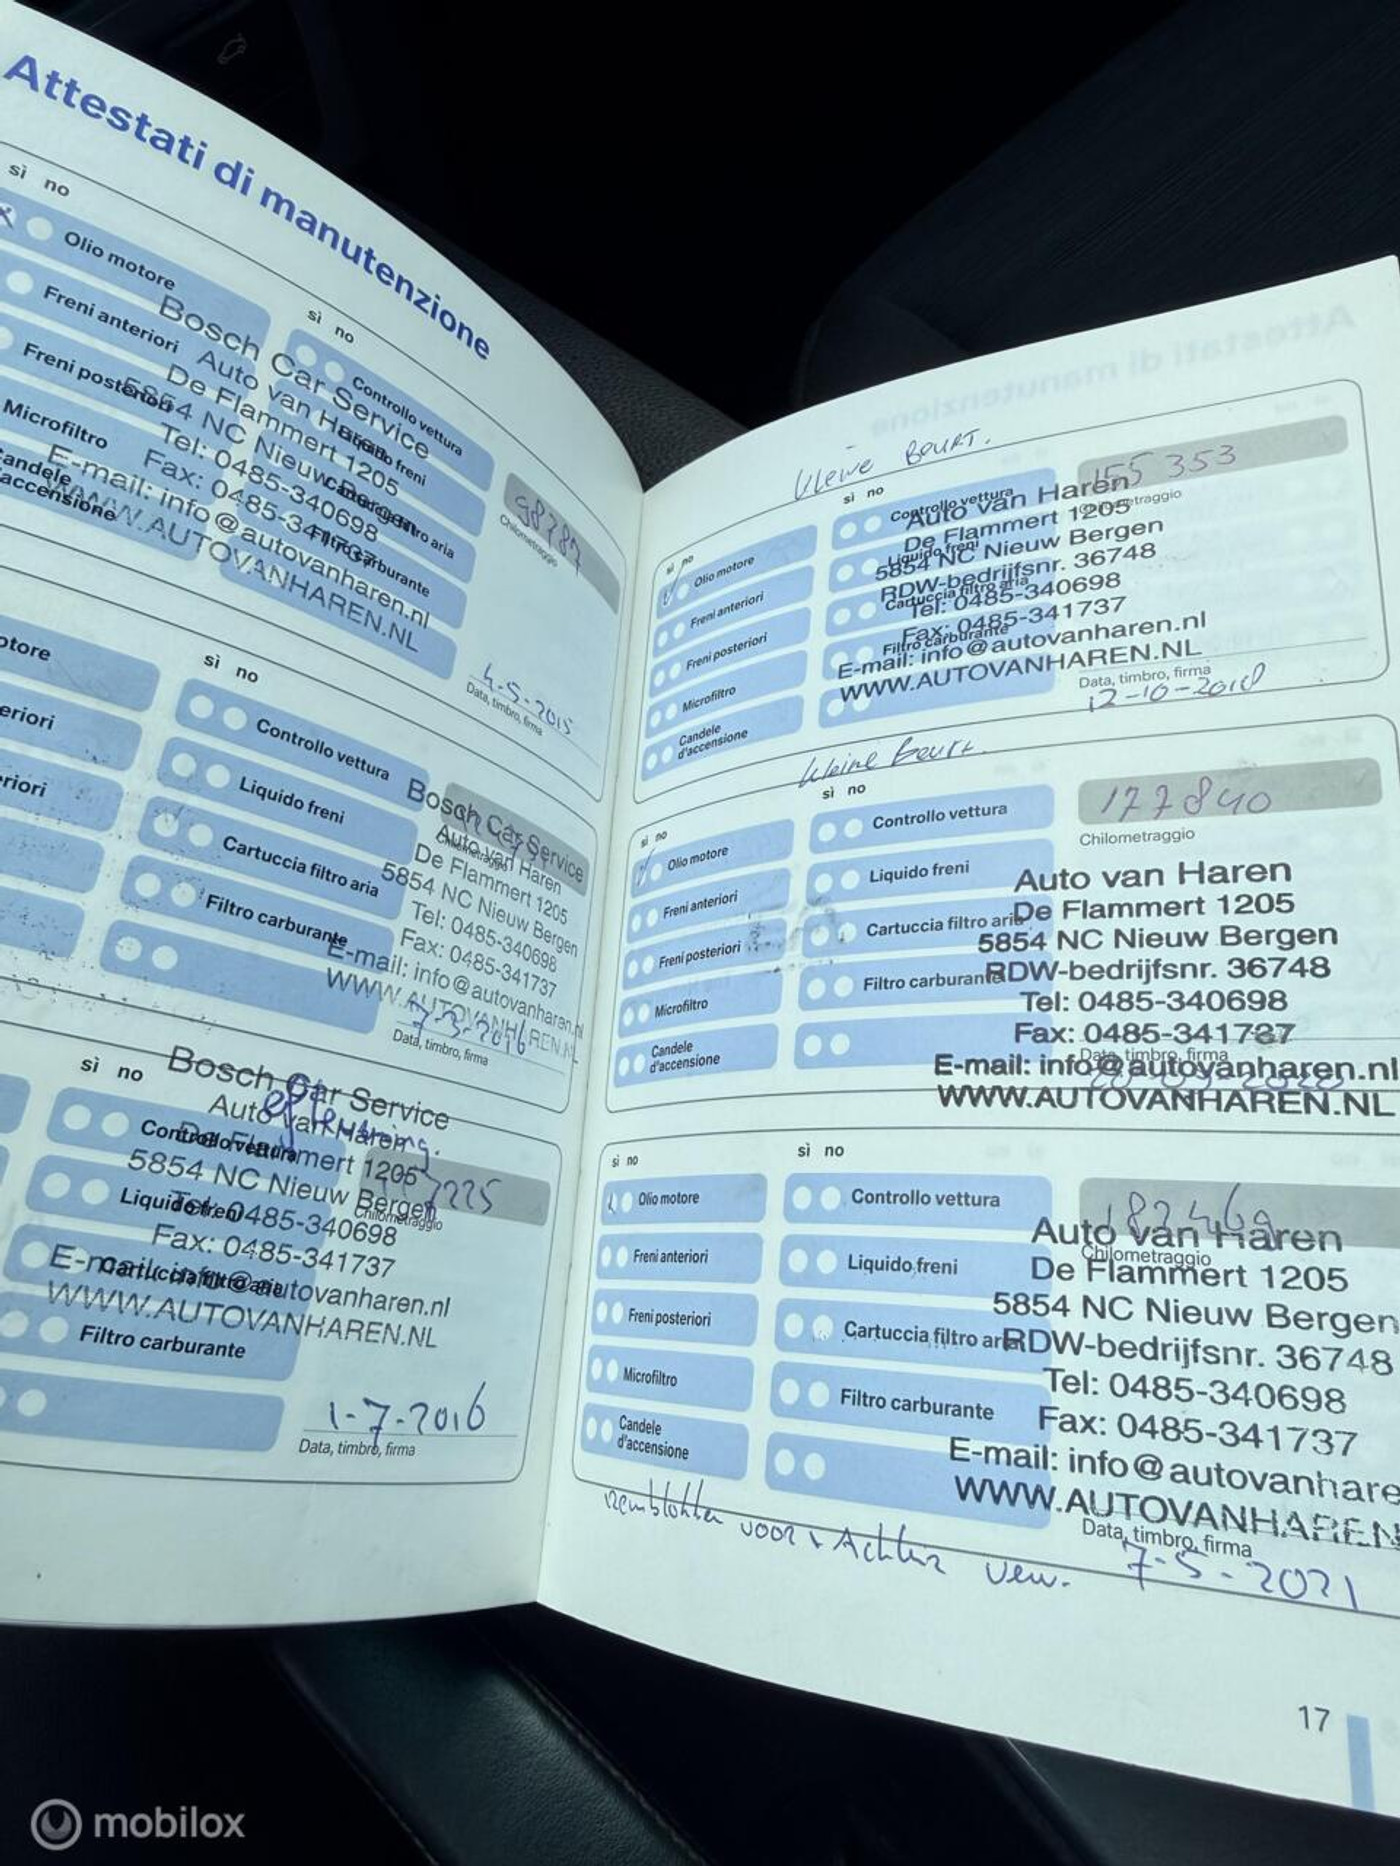 Attestati di manutenzione
sì no
Olio motore
Freni anteriori
Freni posteriori
Microfiltro
Candele
d'accensione
sì no
Controllo vettura
Filtro carburante
Bosch Car Service
Auto van Haren
De Flammert 1205
5854 NC Nieuw Bergen
Tel: 0485-340698
Fax: 0485-341737
E-mail: info@autovanharen.nl
WWW.AUTOVANHAREN.NL
98787
Chilometraggio
4-5-2015
Data, timbro, firma
sì no
Controllo vettura
Liquido freni
Cartuccia filtro aria
Filtro carburante
Bosch Car Service
Auto van Haren
De Flammert 1205
5854 NC Nieuw Bergen
Tel: 0485-340698
Fax: 0485-341737
E-mail: info@autovanharen.nl
WWW.AUTOVANHAREN.NL
Data, timbro, firma
sì no
Controllo vettura
Liquido freni
Cartuccia filtro aria
Filtro carburante
Bosch Car Service
Auto van Haren
De Flammert 1205
5854 NC Nieuw Bergen
Tel: 0485-340698
Fax: 0485-341737
E-mail: info@autovanharen.nl
WWW.AUTOVANHAREN.NL
Chilometraggio
1-7-2016
Data, timbro, firma
Attestati di manutenzione
Kleine Beurt.
sì no
Olio motore
Freni anteriori
Freni posteriori
Microfiltro
Candele
d'accensione
sì no
Controllo vettura
Liquido freni
Cartuccia filtro aria
Filtro carburante
155353
Chilometraggio
Auto van Haren
De Flammert 1205
5854 NC Nieuw Bergen
RDW-bedrijfsnr. 36748
Tel: 0485-340698
Fax: 0485-341737
E-mail: info@autovanharen.nl
WWW.AUTOVANHAREN.NL
Data, timbro, firma
12-10-2018
Kleine Beurt.
sì no
Olio motore
Freni anteriori
Freni posteriori
Microfiltro
Candele
d'accensione
sì no
Controllo vettura
Liquido freni
Cartuccia filtro aria
Filtro carburante
177840
Chilometraggio
Auto van Haren
De Flammert 1205
5854 NC Nieuw Bergen
RDW-bedrijfsnr. 36748
Tel: 0485-340698
Fax: 0485-341737
Data, timbro, firma
E-mail: info@autovanharen.nl
WWW.AUTOVANHAREN.NL
sì no
Olio motore
Freni anteriori
Freni posteriori
Microfiltro
Candele
d'accensione
sì no
Controllo vettura
Liquido freni
Cartuccia filtro aria
Filtro carburante
Chilometraggio
Auto van Haren
De Flammert 1205
5854 NC Nieuw Bergen
RDW-bedrijfsnr. 36748
Tel: 0485-340698
Fax: 0485-341737
E-mail: info@autovanhare
WWW.AUTOVANHAREN
Data, timbro, firma
Remblokken voor + Achter verv. 7-5-2021
17
mobilox